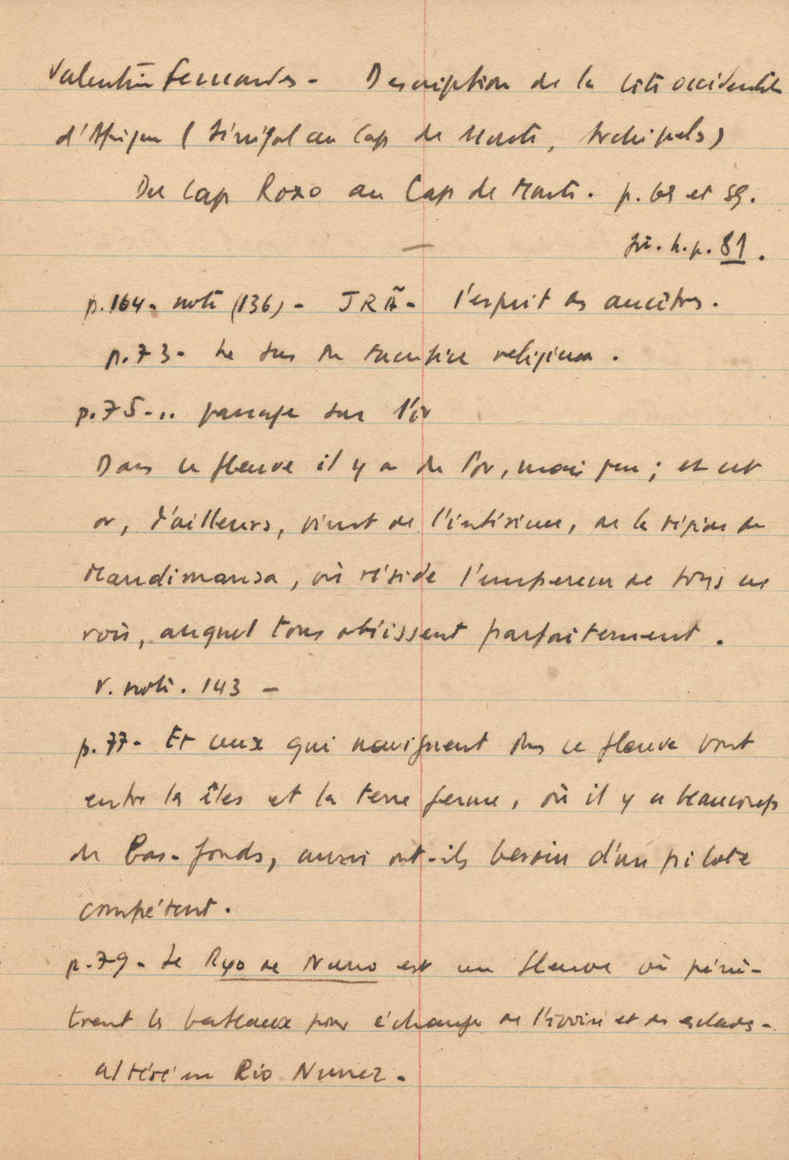 Valentin Fernandes - Description de la côte occidentale
d'Afrique (Sénégal au Cap de Monte, Archipels)
Du Cap Roxo au Cap de Monte. p. 69 et sq.
p. 81.
p. 164 - note (136) - JRÃ - l'esprit des ancêtres.
p. 73 - Le sens du sacrifice religieux.
p. 75 - .. passage sur l'or
Dans ce fleuve il y a de l'or, mais peu ; et cet
or, d'ailleurs, vient de l'intérieur, de la région de
Mandimansa, où réside l'empereur de tous ces
rois, auquel tous obéissent parfaitement.
V. note. 143 -
p. 77 - Et ceux qui naviguent dans ce fleuve vont
entre les îles et la terre ferme, où il y a beaucoup
de bas-fonds, aussi ont-ils besoin d'un pilote
compétent.
p. 79 - Le Ryo de Nuno est un fleuve où pénè-
trent les bateaux pour échanger de l'ivoire et des esclaves -
altéré en Rio Nunez.